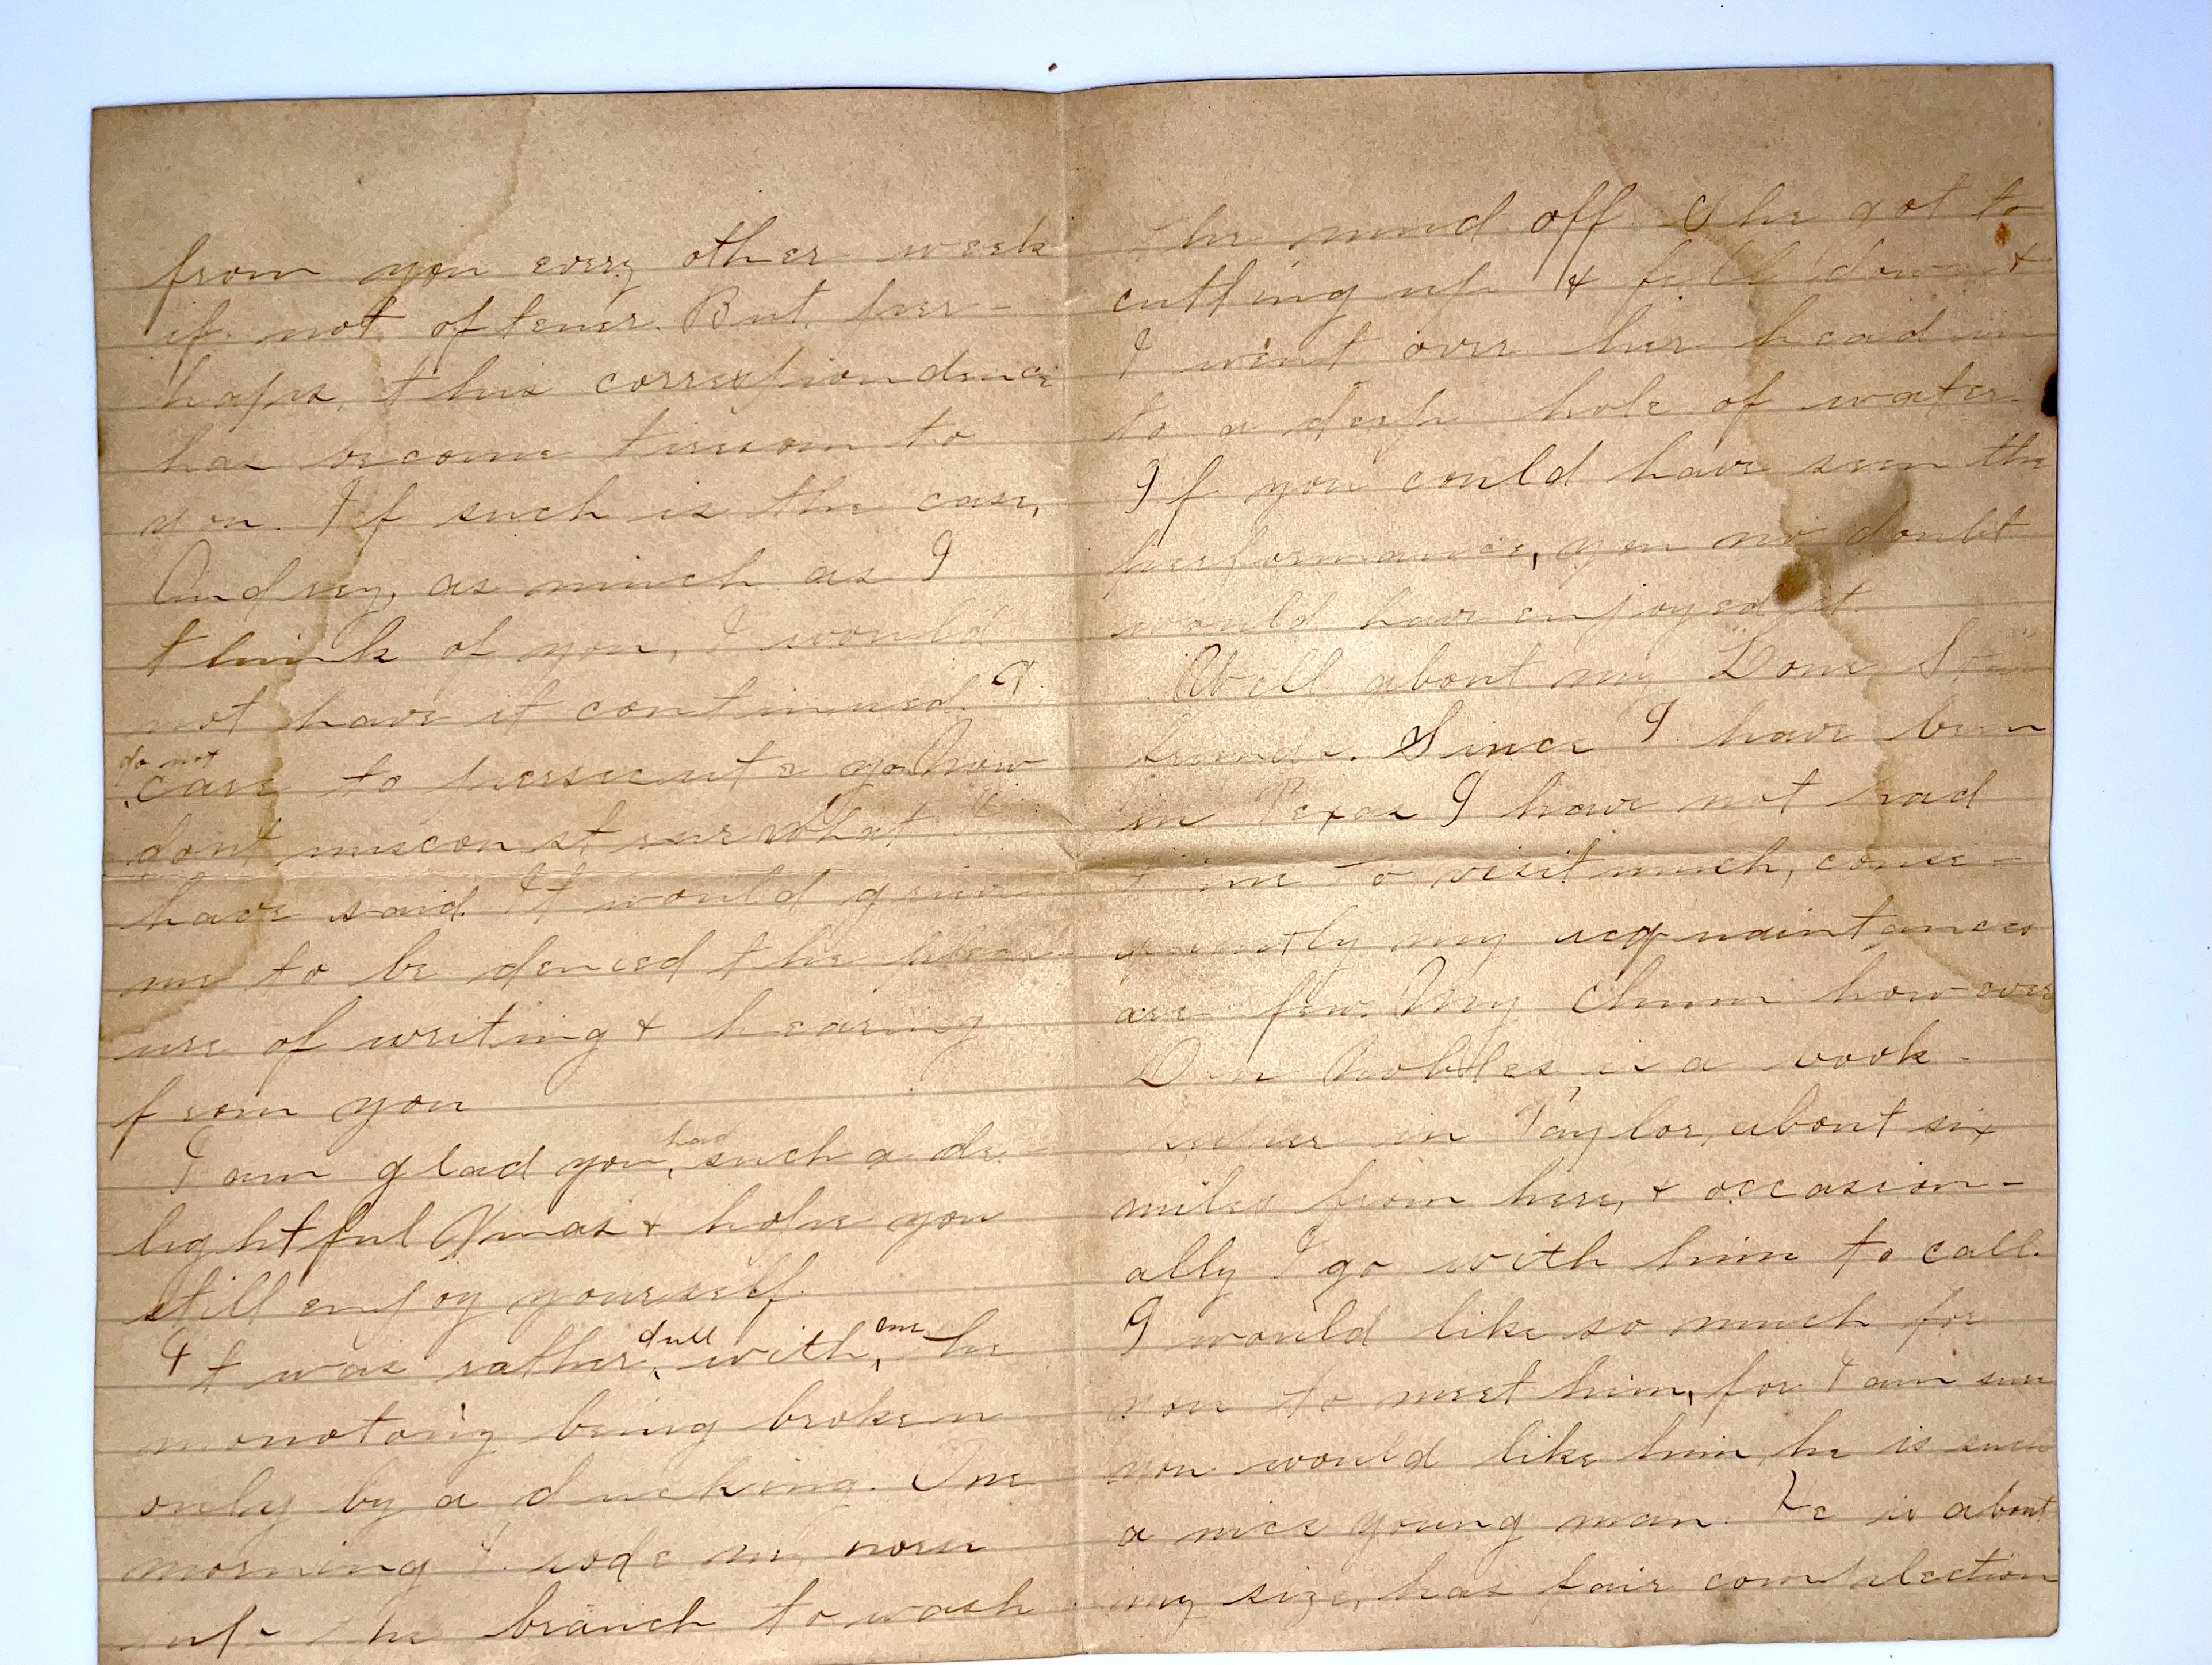 from you every other week
if not oftener. But per-
haps, this correspondence
has become tiresom to
you. If such is the case,
Audrey, as much as I
think of you, I would
not have it continued. I
do not
care to persecute you. Now
dont misconstrue what I
have said. It would grieve
me to be denied the pleas-
ure of writing & hearing
from you
I am glad you had such a de-
lightful Xmas & hope you
still enjoy yourself.
It was rather dull with me, the
monotony being broken
only by a ducking. One
morning I rode my horse
into the branch to wash
the mud off. She got to
cutting up & fell down &
I went over her head in
to a deep hole of water.
If you could have seen the
performance, you no doubt
would have enjoyed it.
Well about my "Lone Star"
friends. Since I have been
in Texas I have not had
time to visit much, conse-
quently my acquaintances
are few. My chum however
Nobles, is a book-
keeper in Taylor, about six
miles from here, & occasion-
ally I go with him to call.
I would like so much for
you to meet him, for I am sure
you would like him, he is such
a nice young man. He is about
my size, has fair complection